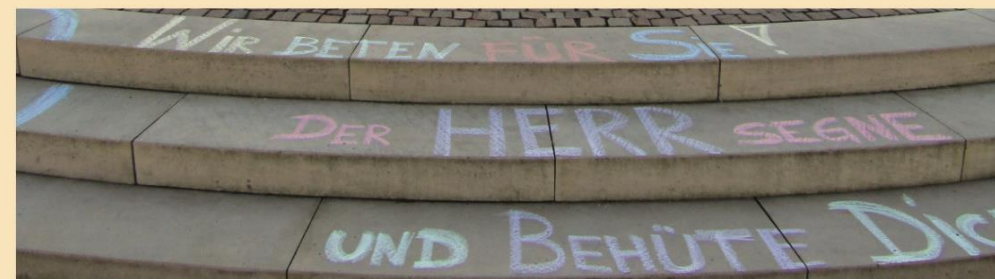 WIR BETEN FÜR SIE!
DER HERR SEGNE
UND BEHÜTE DIC